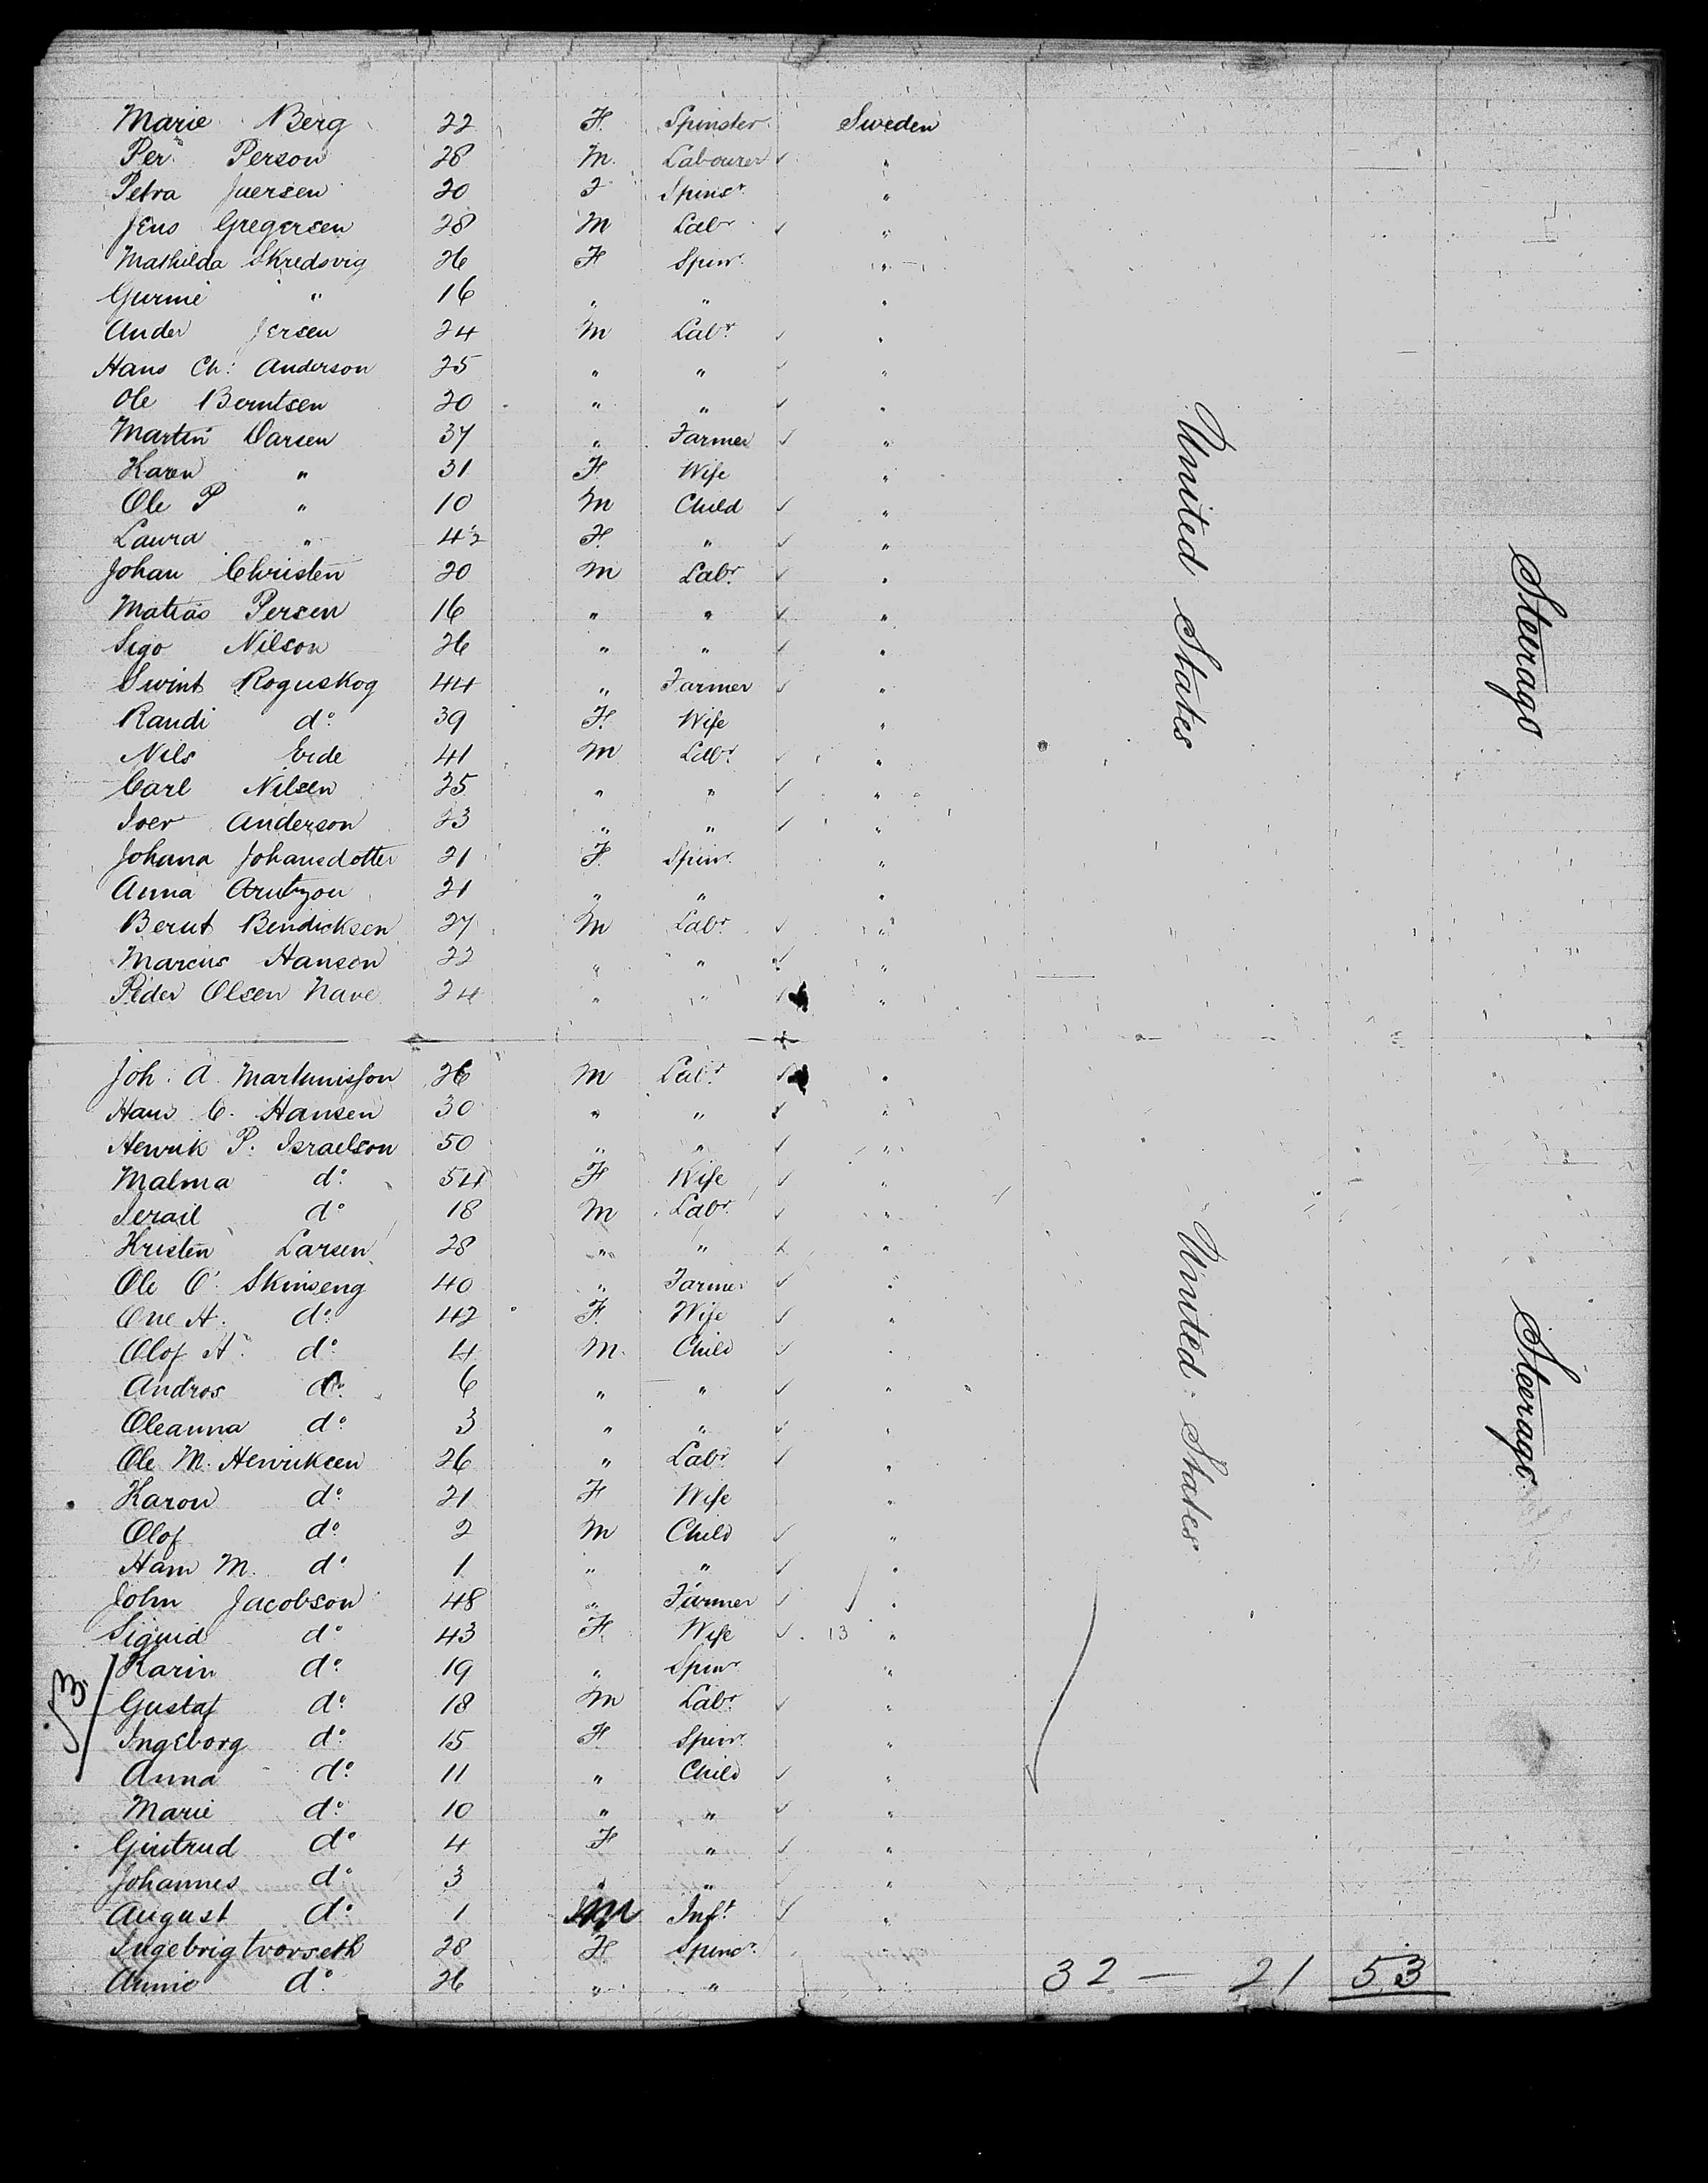 Marie Berg 22 F. Spinster Sweden
Per Person 28 M. Labourer "
Petra Juersen 20 F Spinsr "
Jens Gregersen 28 M Labr "
Mathilda Skredsvig 26 F Spinr "
Gurine " 16 " " "
Ander Jersen 24 M Labr "
Hans Ch: Anderson 25 " " "
Ole Berntsen 20 " " "
Martin Darsen 37 " Farmer "
Karen " 31 F Wife "
Ole P " 10 M Child "
Laura " 4½ F. " "
Johan Christen 20 M Labr "
Matias Persen 16 " " "
Sigo Nilson 26 " " "
Swint Roguskog 44 " Farmer "
Randi do 39 F. Wife "
Nels Eide 41 M Labr "
Carl Nilsen 25 " " "
Iver Anderson 23 " " "
Johana Johansdotter 21 F. Spinr "
Anna Arntzon 21 " " "
Bernt Bendicksen 27 M Labr "
Marcus Hansen 22 " " "
Peder Olsen Nave 24 " " "
United States
Steerage
Joh. A. Martinusson 26 M Labr "
Hans C. Hansen 30 " " "
Henrik P. Israelson 50 " " "
Malma do 54 F Wife "
Serail do 18 M Labr "
Kristen Larsen 28 " " "
Ole O. Skinseng 40 " Farmer "
One A. do 42 F. Wife "
Olof A. do 4 M. Child "
Andros do 6 " " "
Oleanna do 3 " " "
Ole M. Henriksen 26 " Labr "
Karon do 21 F Wife "
Olof do 2 M Child "
Ham M. do 1 " " "
John Jacobson 48 " Farmer "
Sigrid do 43 F. Wife 13 "
Karin do 19 " Spinr "
Gustaf do 18 M Labr "
Ingeborg do 15 F Spinr "
Anna do 11 " Child "
Marie do 10 " " "
Gintrud do 4 F " "
Johannes do 3 " " "
August do 1 M Inft "
Ingebrigtvorseth 28 F Spinsr
Annie do 26 " "
United States
Steerage
53
32 — 21 53